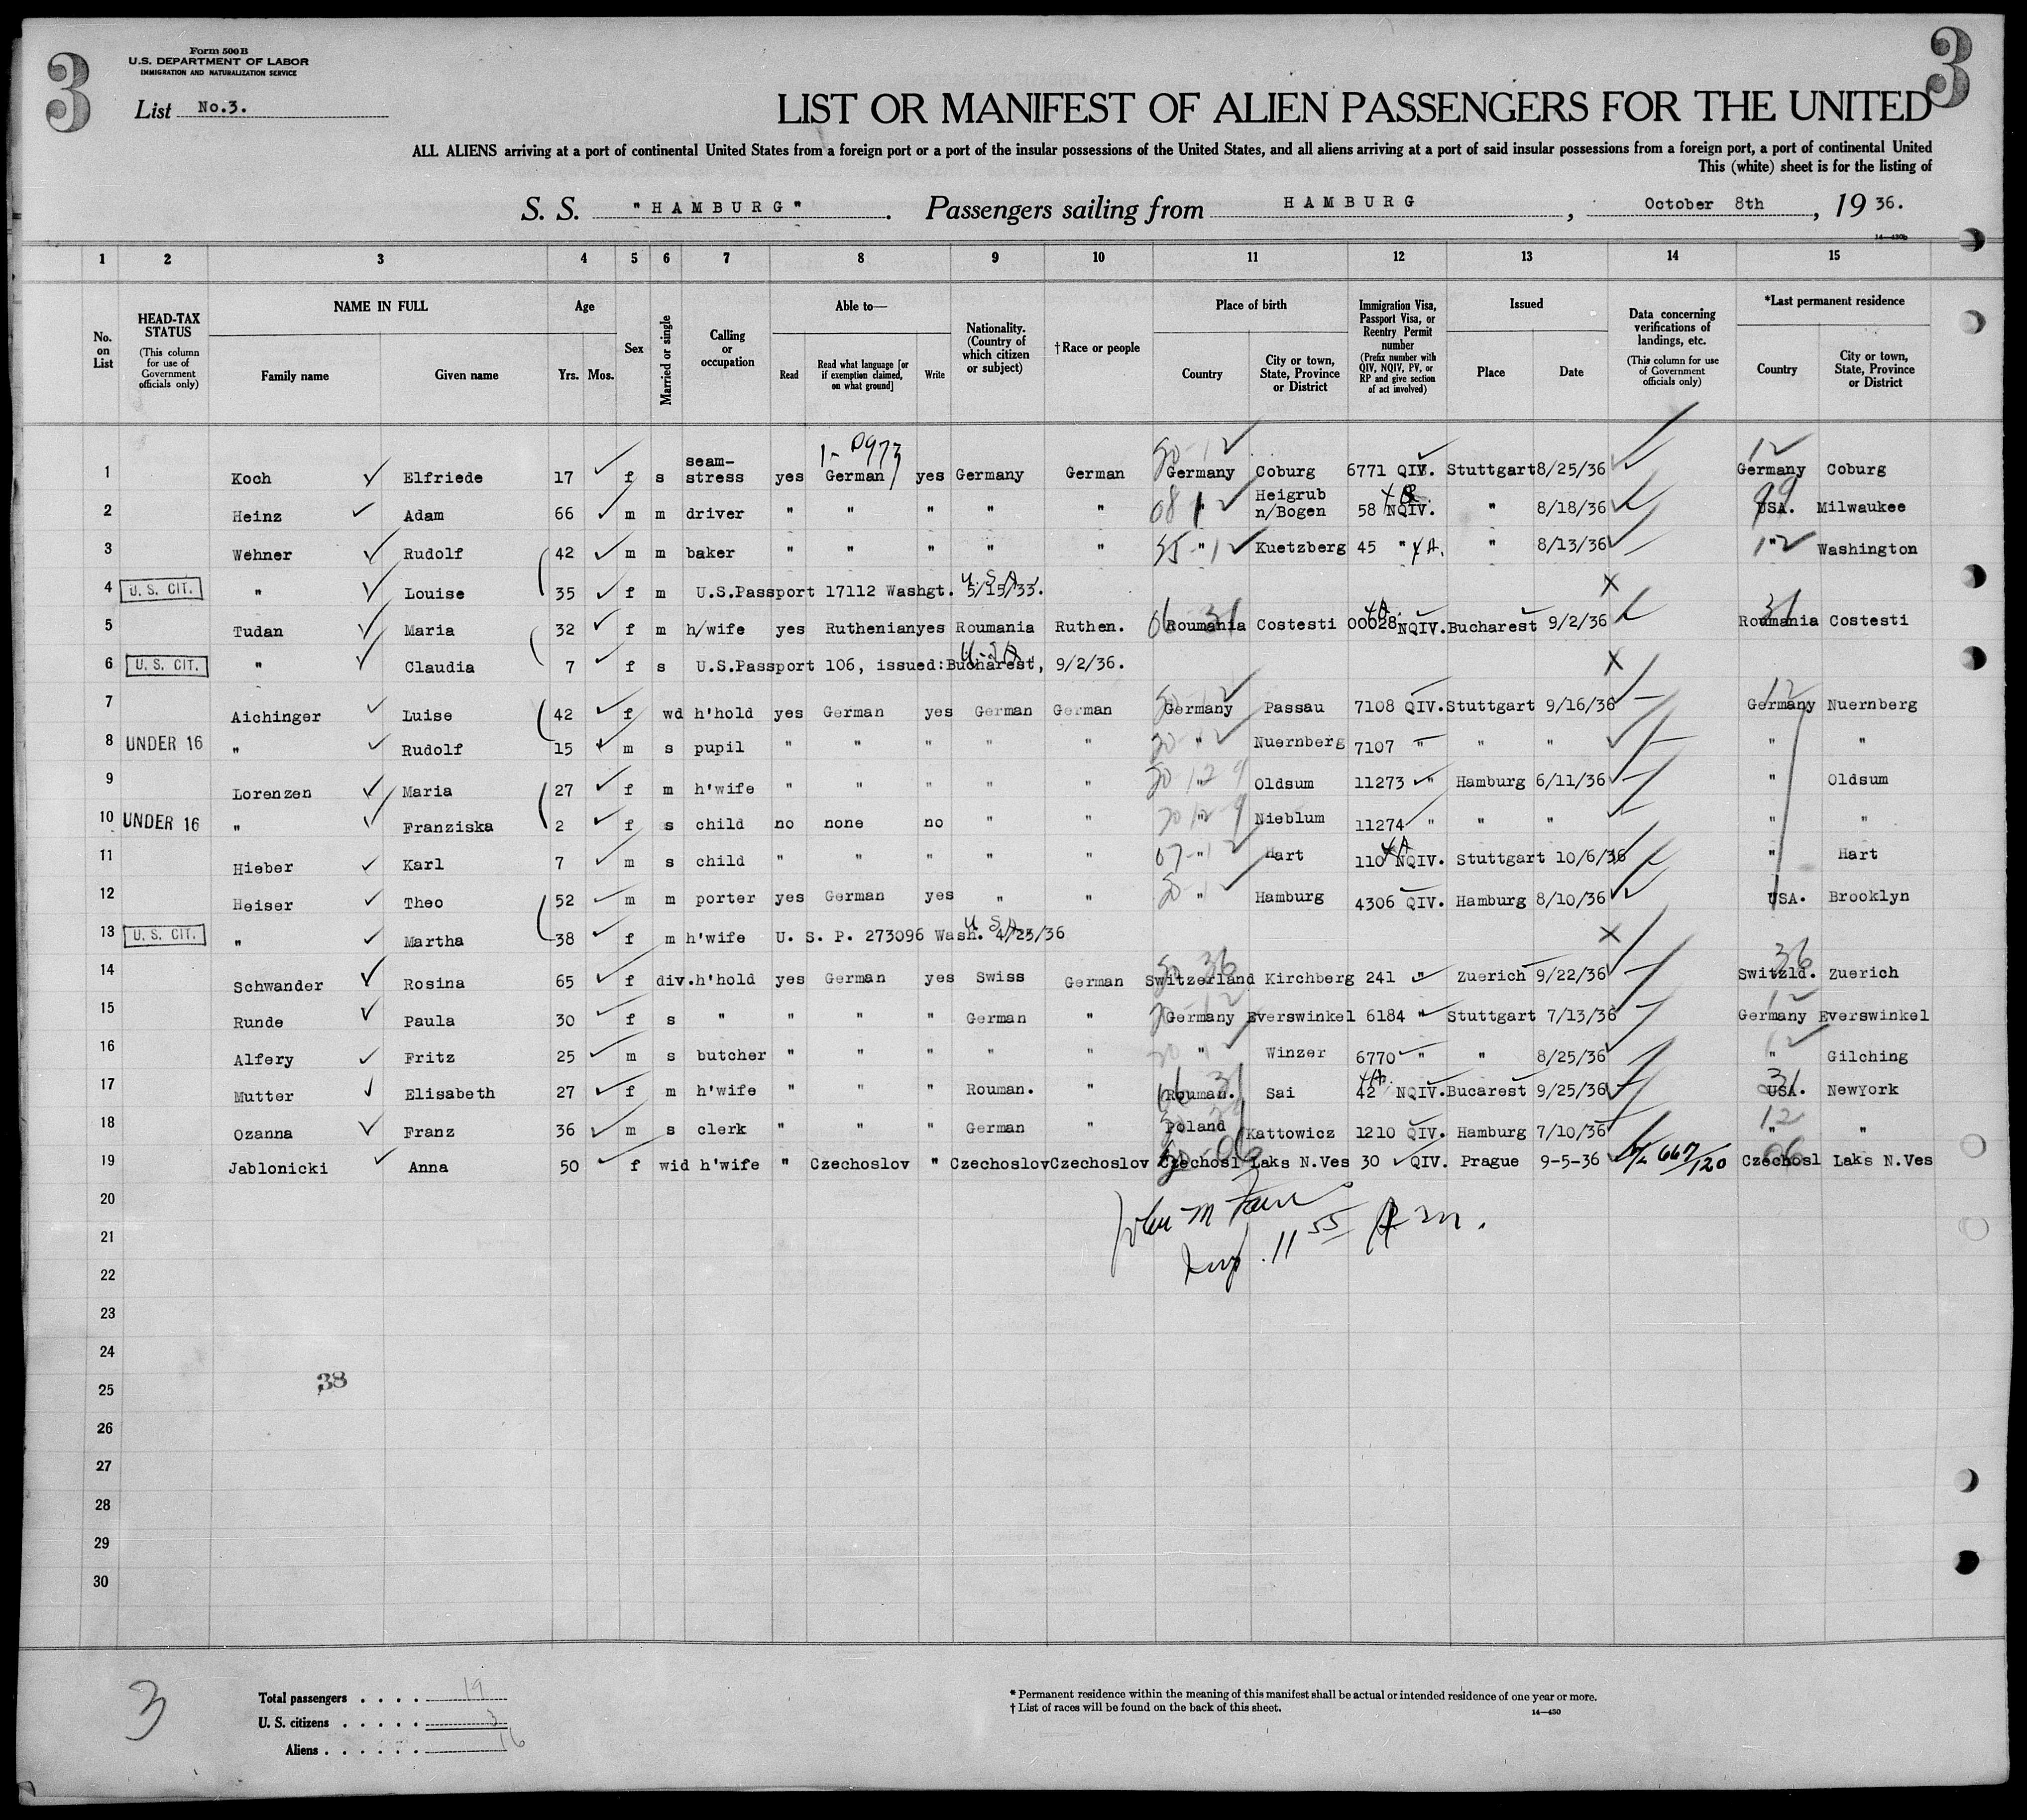 3
3
Form 500 B
U.S. DEPARTMENT OF LABOR
IMMIGRATION AND NATURALIZATION SERVICE
List No.3.
LIST OR MANIFEST OF ALIEN PASSENGERS FOR THE UNITED
ALL ALIENS arriving at a port of continental United States from a foreign port or a port of the insular possessions of the United States, and all aliens arriving at a port of said insular possessions from a foreign port, a port of continental United
This (white) sheet is for the listing of
S. S. "HAMBURG". Passengers sailing from HAMBURG, October 8th, 19 36.
1 2 3 4 5 6 7 8 9 10 11 12 13 14 15
No. on List
HEAD-TAX STATUS (This column for use of Government officials only)
NAME IN FULL Family name Given name
Age Yrs. Mos.
Sex
Married or single
Calling or occupation
Able to— Read Read what language [or if exemption claimed, on what ground] Write
Nationality. (Country of which citizen or subject)
†Race or people
Place of birth Country City or town, State, Province or District
Immigration Visa, Passport Visa, or Reentry Permit number (Prefix number with QIV, NQIV, PV, or RP and give section of act involved)
Issued Place Date
Data concerning verifications of landings, etc. (This column for use of Government officials only)
*Last permanent residence Country City or town, State, Province or District
1 Koch Elfriede 17 f s seam-stress yes German yes Germany German Germany Coburg 6771 QIV. Stuttgart 8/25/36 Germany Coburg
2 Heinz Adam 66 m m driver " " " " " " Heigrub n/Bogen 58 NQIV. " 8/18/36 USA. Milwaukee
3 Wehner Rudolf 42 m m baker " " " " " " Kuetzberg 45 " 4A. " 8/13/36 " Washington
4 U. S. CIT. " Louise 35 f m U.S.Passport 17112 Washgt. 5/15/33. U.S.A.
5 Tudan Maria 32 f m h/wife yes Ruthenian yes Roumania Ruthen. Roumania Costesti 00028 NQIV. Bucharest 9/2/36 Roumania Costesti
6 U. S. CIT. " Claudia 7 f s U.S.Passport 106, issued:Bucharest, 9/2/36. U.S.A.
7 Aichinger Luise 42 f wd h'hold yes German yes German German Germany Passau 7108 QIV. Stuttgart 9/16/36 Germany Nuernberg
8 UNDER 16 " Rudolf 15 m s pupil " " " " " " Nuernberg 7107 " " " " "
9 Lorenzen Maria 27 f m h'wife " " " " " " Oldsum 11273 " Hamburg 6/11/36 " Oldsum
10 UNDER 16 " Franziska 2 f s child no none no " " " Nieblum 11274 " " " " "
11 Hieber Karl 7 m s child " " " " " " Hart 110 NQIV. Stuttgart 10/6/36 " Hart
12 Heiser Theo 52 m m porter yes German yes " " " Hamburg 4306 QIV. Hamburg 8/10/36 USA. Brooklyn
13 U. S. CIT. " Martha 38 f m h'wife U. S. P. 273096 Wash. 4/23/36 U.S.A.
14 Schwander Rosina 65 f div. h'hold yes German yes Swiss German Switzerland Kirchberg 241 " Zuerich 9/22/36 Switzld. Zuerich
15 Runde Paula 30 f s " " " " German " Germany Everswinkel 6184 " Stuttgart 7/13/36 Germany Everswinkel
16 Alfery Fritz 25 m s butcher " " " " " " Winzer 6770 " " 8/25/36 " Gilching
17 Mutter Elisabeth 27 f m h'wife " " " Rouman. " Rouman. Sai 42 NQIV. Bucarest 9/25/36 USA. NewYork
18 Ozanna Franz 36 m s clerk " " " German " Poland Kattowicz 1210 QIV. Hamburg 7/10/36 " "
19 Jablonicki Anna 50 f wid h'wife " Czechoslov " Czechoslov Czechoslov Czechosl Laks N.Ves 30 QIV. Prague 9-5-36 667/120 Czechosl Laks N.Ves
20
21
22
23
24
25
26
27
28
29
30
11 55 A m.
38
3
Total passengers . . . . 19
U. S. citizens . . . . . 3
Aliens . . . . . . 16
* Permanent residence within the meaning of this manifest shall be actual or intended residence of one year or more.
† List of races will be found on the back of this sheet.
14—430